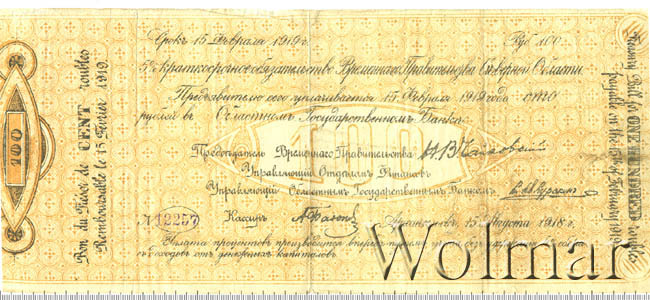 Срокъ 15 Февраля 1919 г. Руб. 100.
5% краткосрочное обязательство Временнаго Правительства Сѣверной Области.
Предъявителю сего уплачивается 15 Февраля 1919 года сто
рублей въ Областномъ Государственномъ Банкѣ.
100
Предсѣдатель Временнаго Правительства
Управляющій Отдѣломъ Финансовъ
Управляющій Областнымъ Государственнымъ Банкомъ
№ 12257 Кассиръ Архангельскъ, 15 Августа 1918 г.
Уплата процентовъ производится впередъ
съ доходовъ отъ денежныхъ капиталовъ.
Bon du Trésor de CENT roubles
Remboursable le 15 Février 1919.
100
Treasury Bill for ONE HUNDRED roubles
payable on the 15th of February 1919
Wolmar